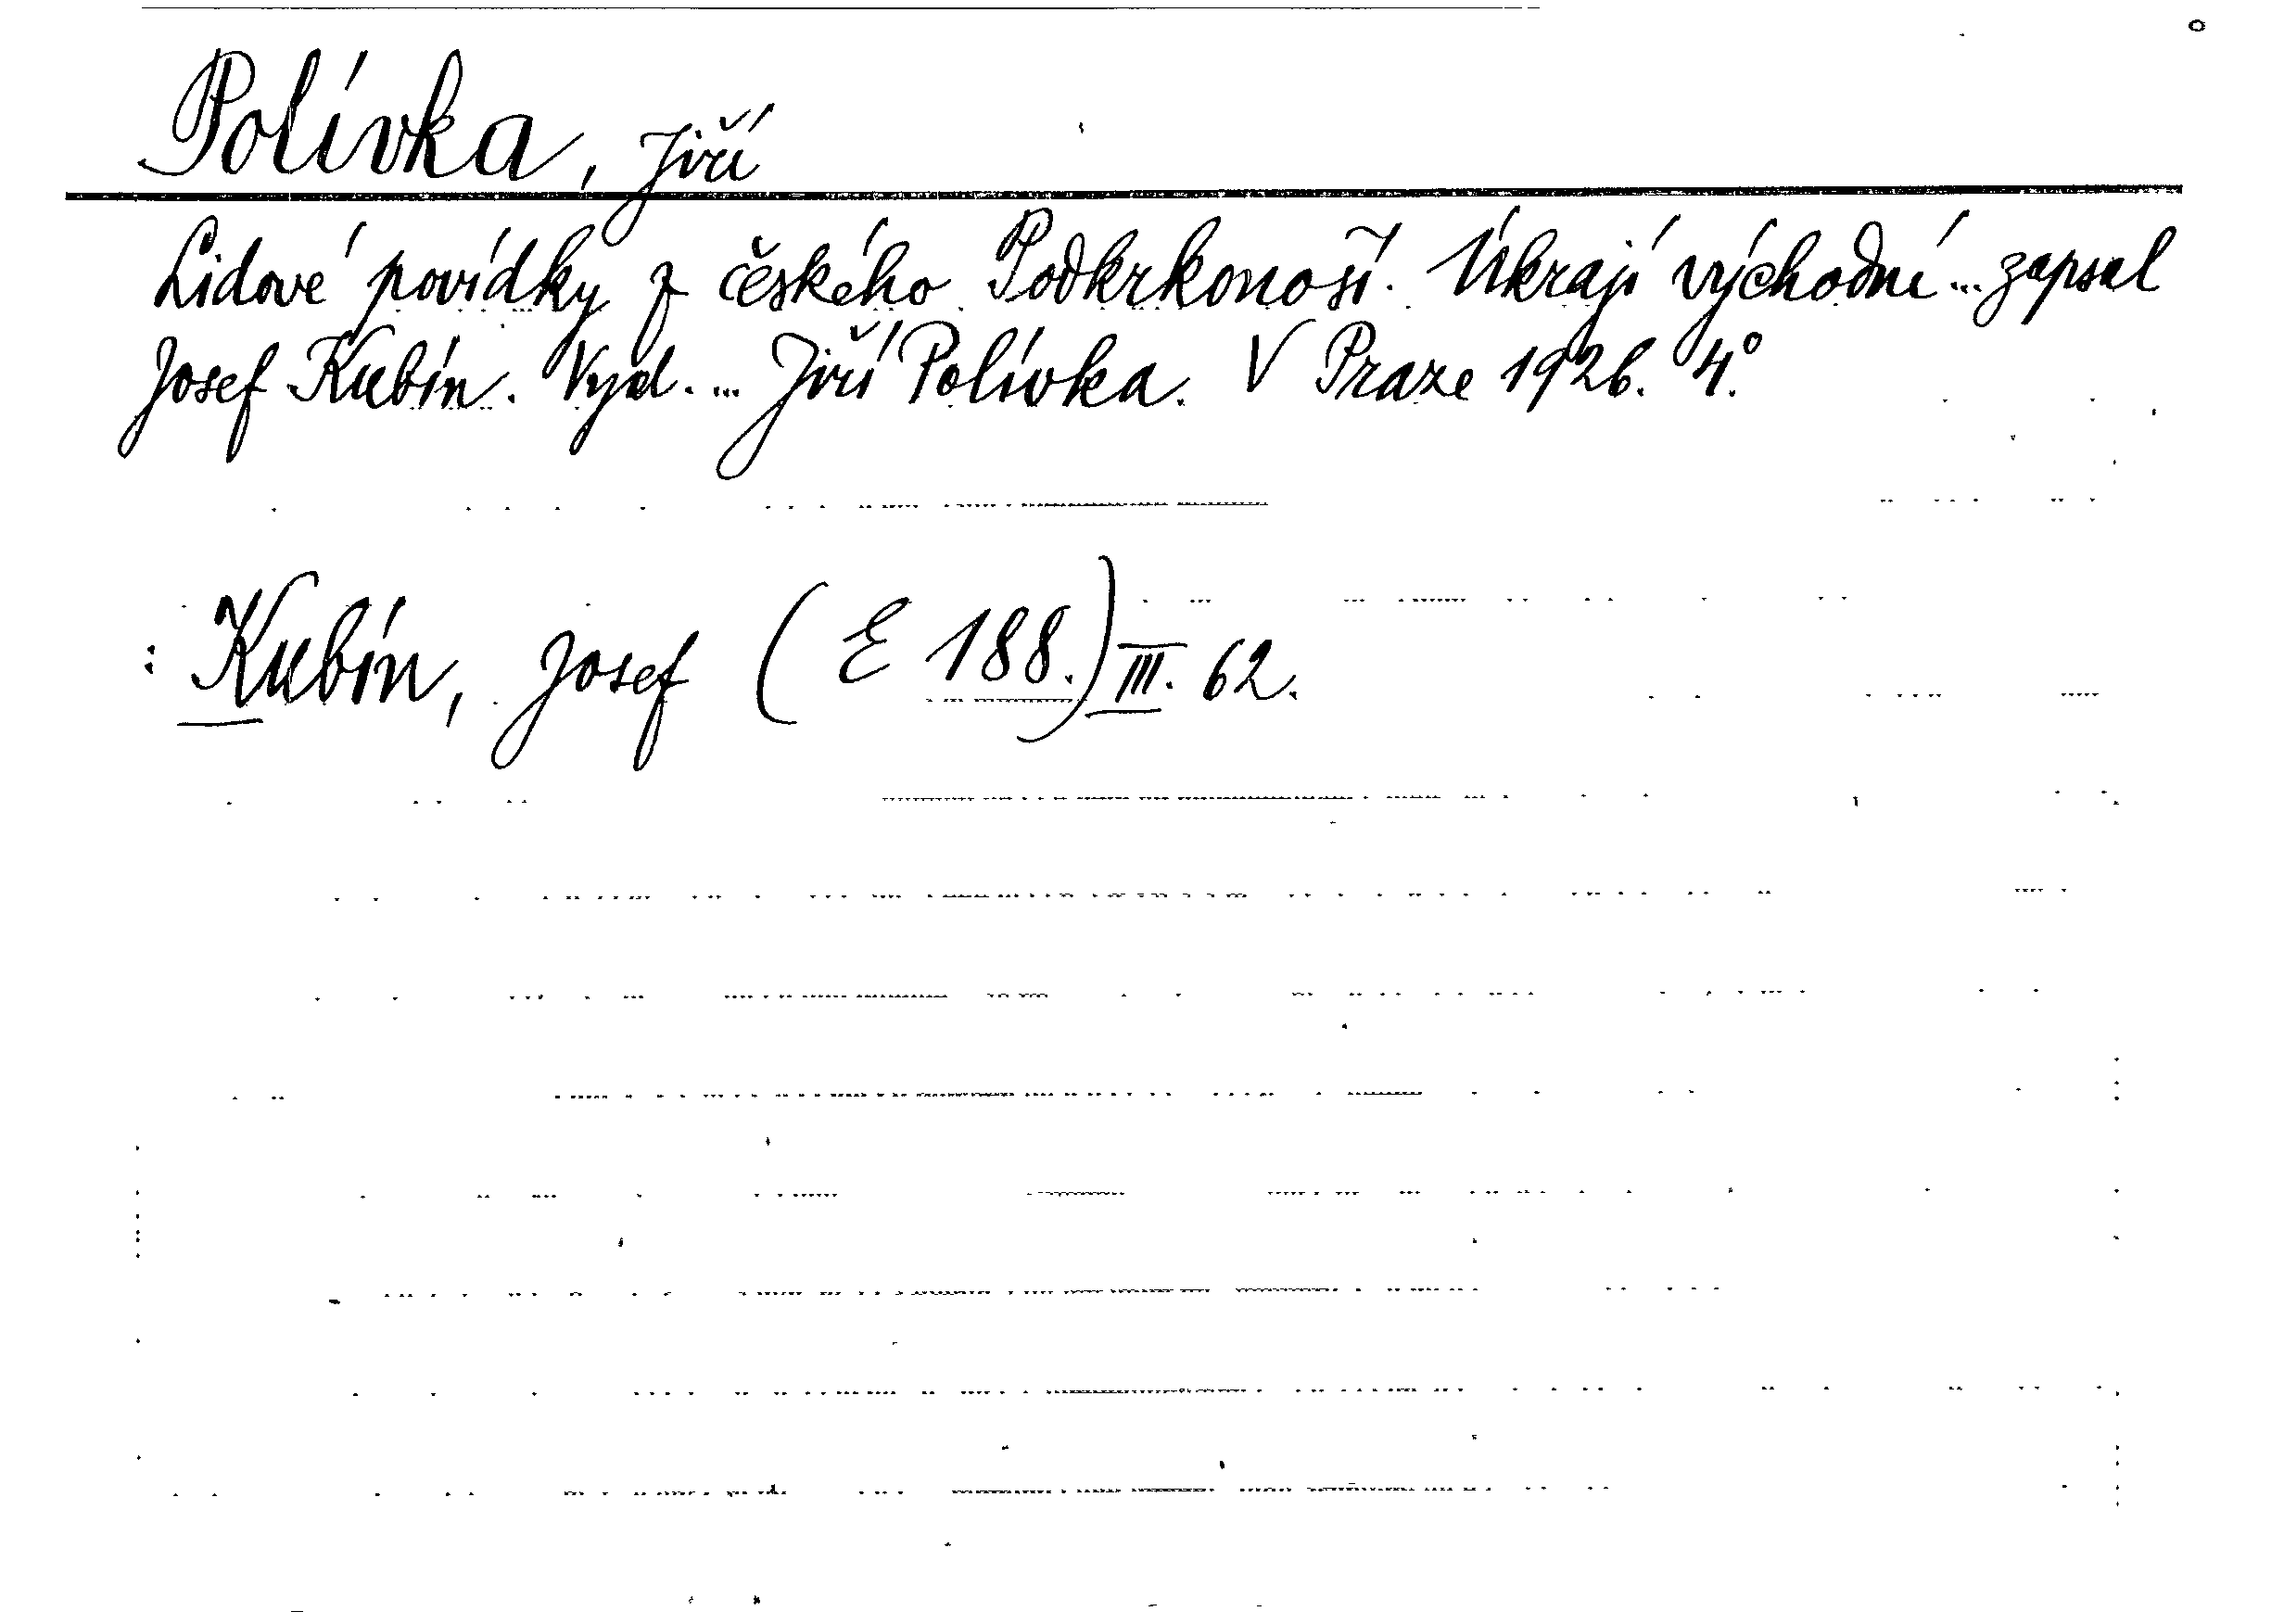 Polívka, Jiří
Lidové povídky z českého Podkrkonoší. Úkrají východní ... zapsal
Josef Kubín. Vyd. ... Jiří Polívka. V Praze 1926. 4.°
: Kubín, Josef (E 188.) III. 62.